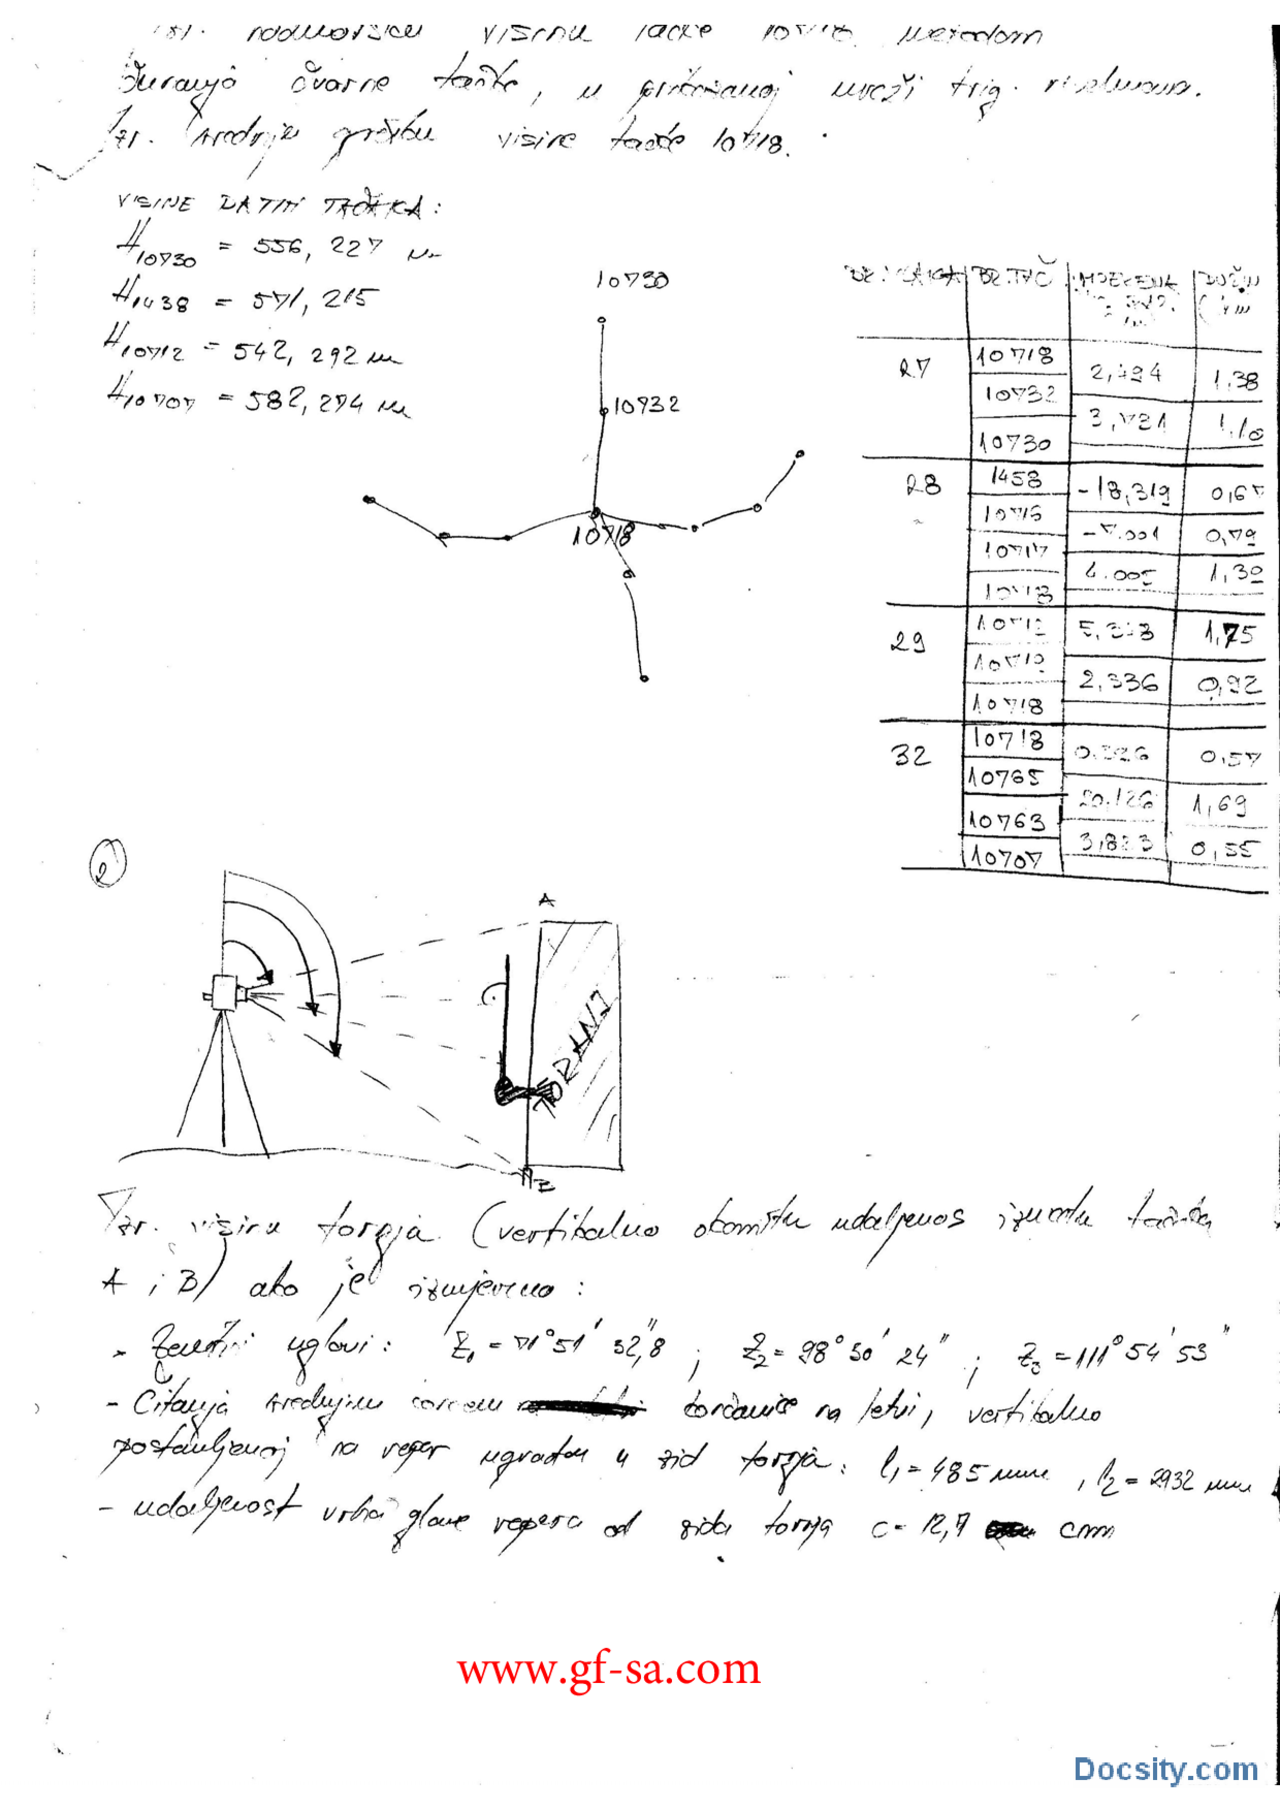 Izr. nadmorsku visinu tačke 10718 metodom
čvorne tačke, u prikazanoj mreži trig. nivelmana.
Izr. srednju grešku visine tačke 10718.
VISINE DATIH TAČAKA:
H10730 = 556,227 m
H1438 = 571,215
H10712 = 542,292 m
H10707 = 582,274 m
10730
10732
10718
BR. VLAKA BR.TAČ MJERENA DUŽIN
27 10718 10732 10730 1,38 1,10
28 1458 10716 10717 10718 -18,319 -7.001 4.005 0,67 0,79 1,30
29 10718 2,336 1,75 0,92
32 10718 10765 10763 10707 0.326 20.126 3,823 0,57 1,69 0,55
2
A
TORANJ
B
Izr. visinu tornja (vertikalno okomitu udaljenos između tačaka
A i B) ako je izmjereno:
- Zenitni uglovi: Z1 = 71°51'32,"8 ; Z2 = 98°30'24" ; Z3 = 111°54'53"
- Čitanja srednjim koncem končanice na letvi, vertikalno
postavljenoj na reper ugrađen u zid tornja: l1 = 485 mm , l2 = 2932 mm
- udaljenost vrha glave repera od zida tornja c = 12,7 cm
www.gf-sa.com
Docsity.com